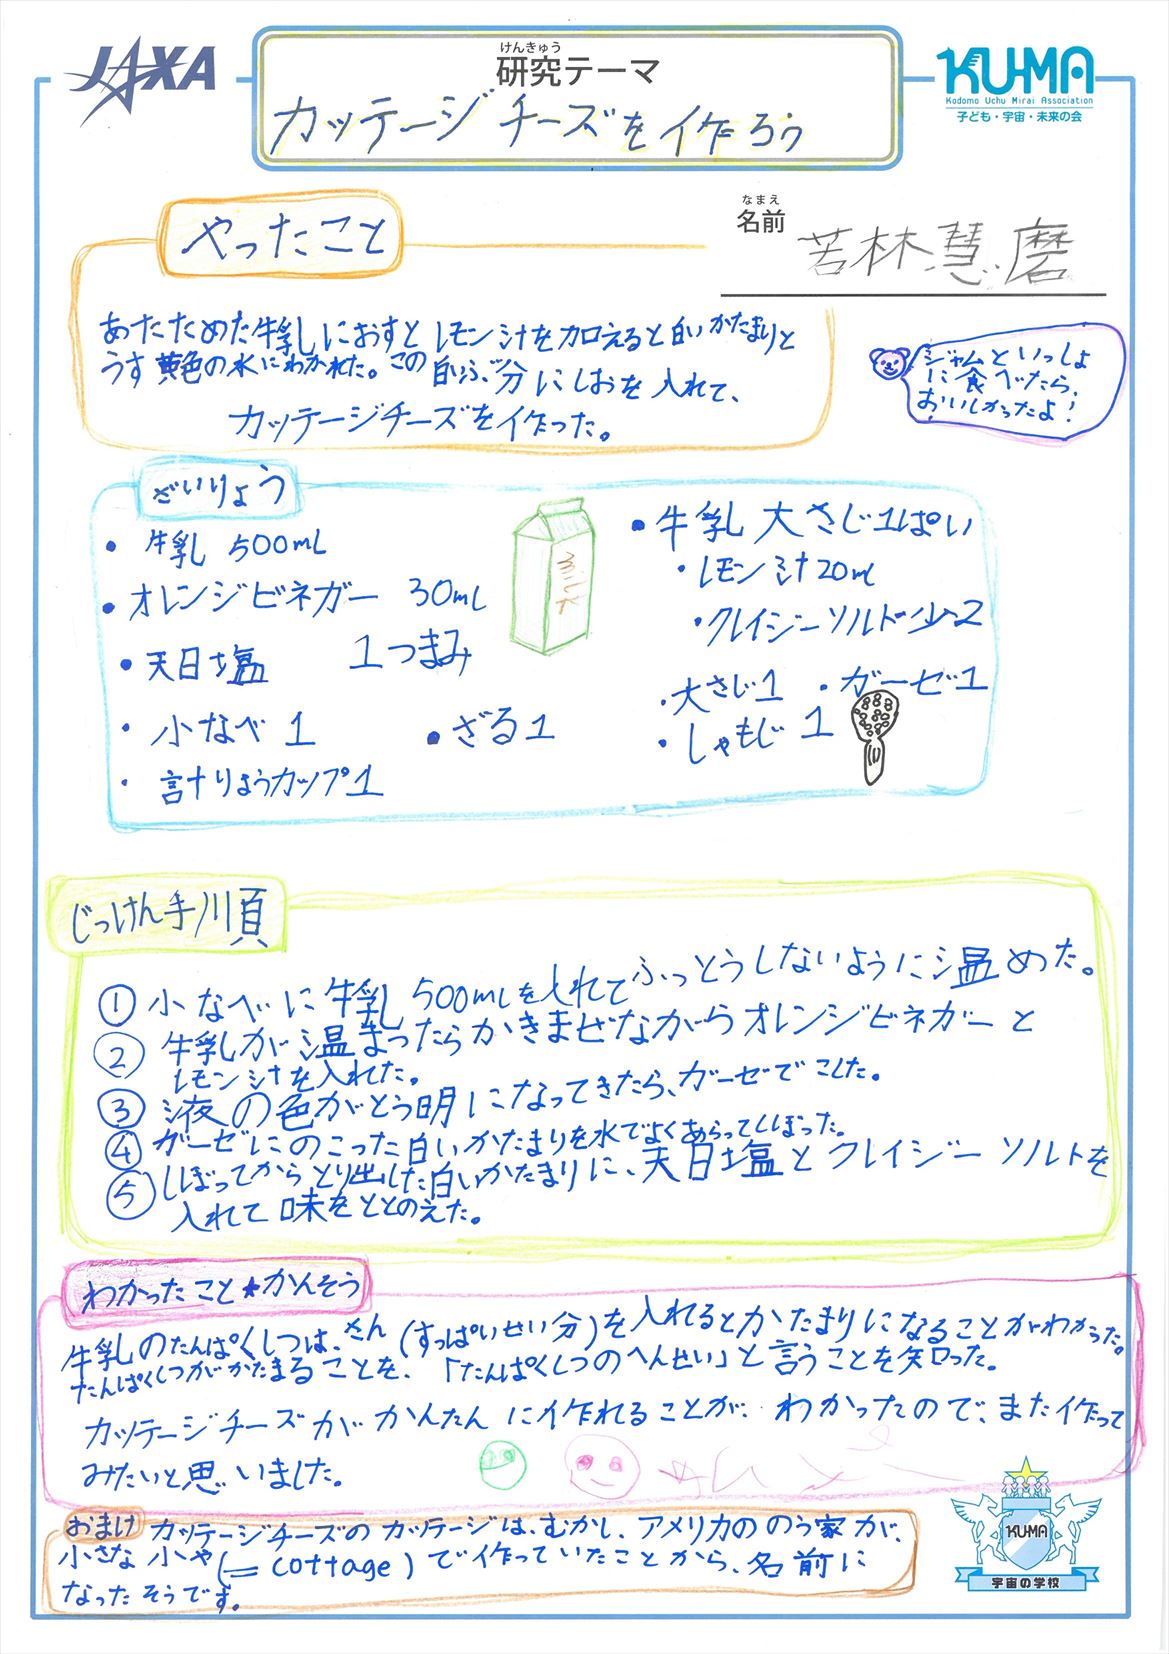 JAXA
けんきゅう
研究テーマ
カッテージチーズを作ろう
KU-MA
Kodomo Uchu Mirai Association
子ども・宇宙・未来の会
なまえ
名前
若林慧磨
やったこと
あたためた牛乳におすとレモン汁を加えると白いかたまりと
うす黄色の水にわかれた。この白いぶ分にしおを入れて、
カッテージチーズを作った。
ジャムといっしょ
に食べたら、
おいしかったよ!
ざいりょう
・牛乳 500mL
・オレンジビネガー 30mL
・天日塩 1つまみ
・小なべ 1
・ざる1
・計りょうカップ1
milk
・牛乳 大さじ1ぱい
・レモン汁20mL
・クレイジーソルト少々
・大さじ1 ・ガーゼ1
・しゃもじ 1
じっけん手順
① 小なべに牛乳500mLを入れてふっとうしないように温めた。
② 牛乳が温まったらかきまぜながらオレンジビネガーと
レモン汁を入れた。
③ 液の色がとう明になってきたら、ガーゼでこした。
④ ガーゼにのこった白いかたまりを水でよくあらってしぼった。
⑤ しぼってからとり出した白いかたまりに、天日塩とクレイジーソルトを
入れて味をととのえた。
わかったこと★かんそう
牛乳のたんぱくしつは、さん(すっぱいせい分)を入れるとかたまりになることがわかった。
たんぱくしつがかたまることを、「たんぱくしつのへんせい」と言うことを知った。
カッテージチーズがかんたんに作れることが、わかったので、また作って
みたいと思いました。
おまけ カッテージチーズのカッテージは、むかし、アメリカののう家が、
小さな小や(=cottage)で作っていたことから、名前に
なったそうです。
KU-MA
宇宙の学校